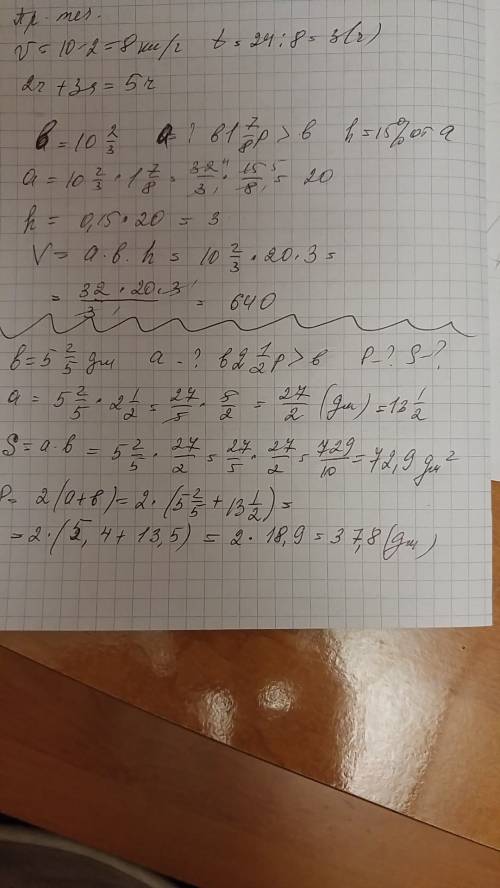 Пр. теч.
V = 10 - 2 = 8 км/ч t = 24 : 8 = 3 (ч)
2ч + 3ч = 5ч
в = 10 2/3 а = ? в 1 7/8 р > в h = 15% от а
а = 10 2/3 · 1 7/8 = 32/3 · 15/8 = 20
h = 0,15 · 20 = 3
V = а · в · h = 10 2/3 · 20 · 3 =
= 32 · 20 · 3/3 = 640
в = 5 2/5 дм а - ? в 2 1/2 р > в Р - ? S - ?
а = 5 2/5 · 2 1/2 = 27/5 · 5/2 = 27/2 (дм) = 13 1/2
S = а · в = 5 2/5 · 27/2 = 27/5 · 27/2 = 729/10 = 72,9 дм²
Р = 2 (а + в) = 2 · (5 2/5 + 13 1/2) =
= 2 · (5,4 + 13,5) = 2 · 18,9 = 37,8 (дм)